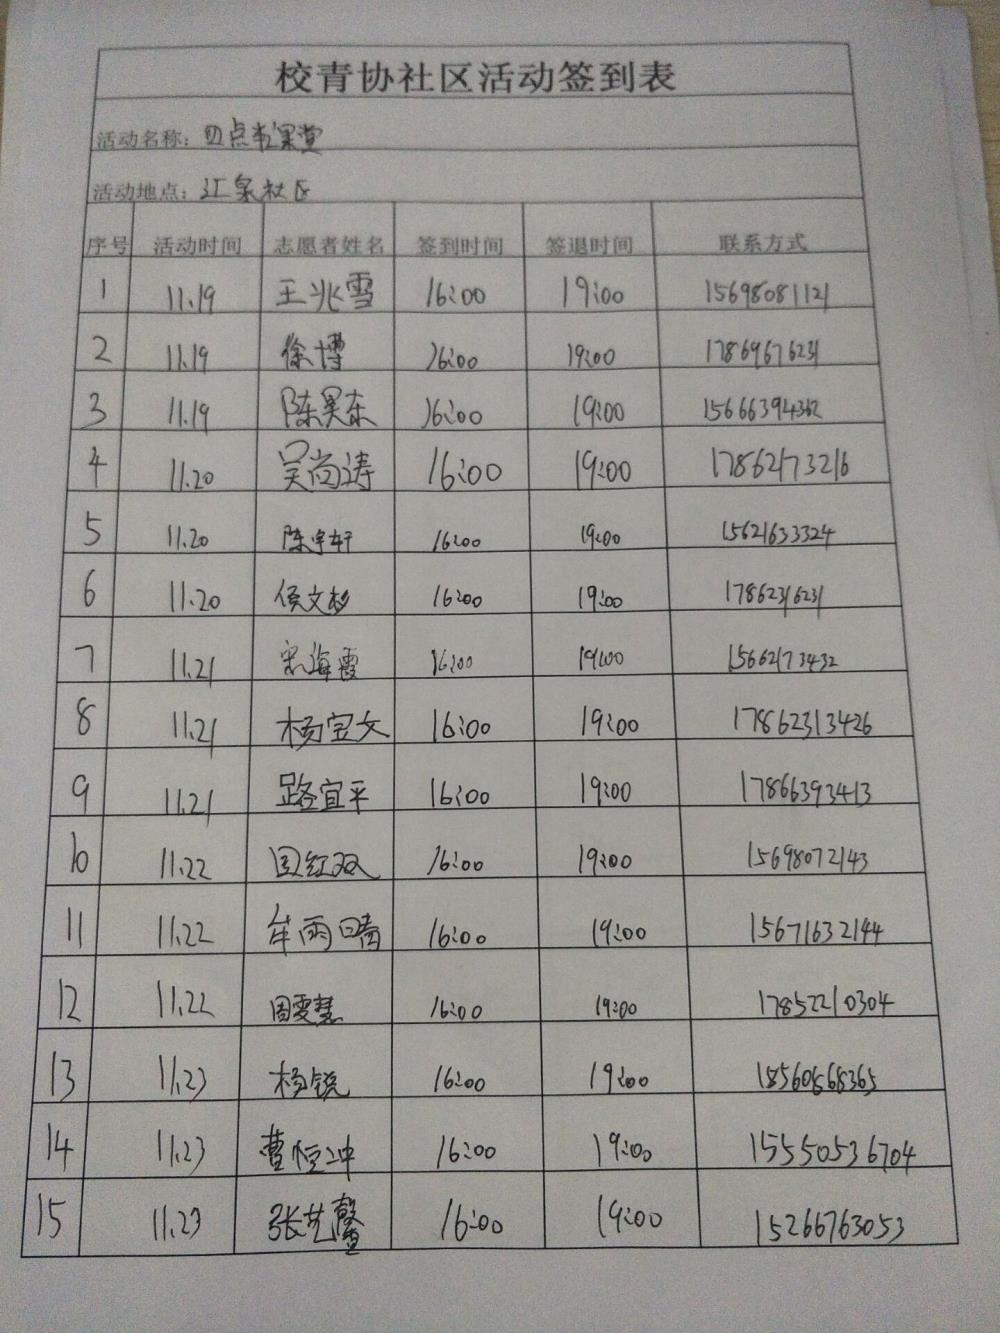 校青协社区活动签到表
活动名称：四点半课堂
活动地点：汇泉社区
序号 活动时间 志愿者姓名 签到时间 签退时间 联系方式
1 11.19 王兆雪 16:00 19:00 15698081121
2 11.19 徐博 16:00 19:00 17869676231
3 11.19 陈昊东 16:00 19:00
4 11.20 吴尚涛 16:00 19:00 17862173216
5 11.20 陈宇轩 16:00 19:00 15621633324
6 11.20 侯文杉 16:00 19:00 17862316231
7 11.21 宋海霞 16:00 19:00 15662173432
8 11.21 杨宝文 16:00 19:00 17862313426
9 11.21 路宜平 16:00 19:00 17866393413
10 11.22 周红双 16:00 19:00 15698072143
11 11.22 牟雨晴 16:00 19:00 15671632144
12 11.22 周雯慧 16:00 19:00 17852210304
13 11.23 杨锐 16:00 19:00 18560868365
14 11.23 曹恒冲 16:00 19:00 15550536704
15 11.23 张艺馨 16:00 19:00 15266763053